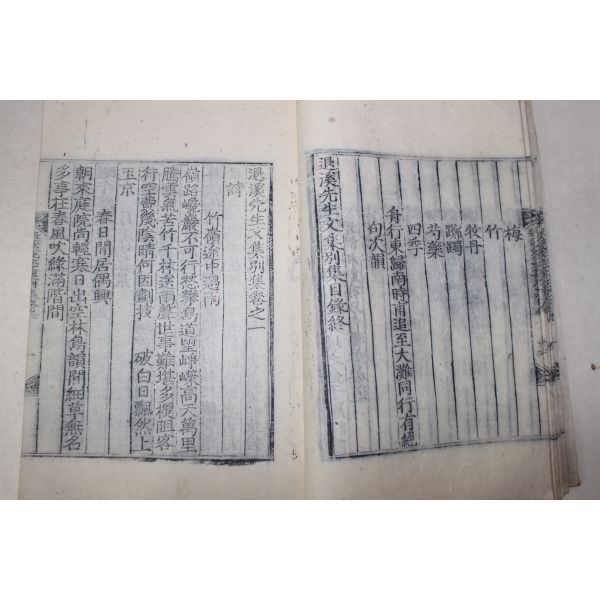 梅
竹
牧丹
躑躅
芍藥
四季
舟行東歸南時甫追至大灘同行有絕
句次韻
退溪先生文集別集目錄終
退溪先生文集別集卷之一
詩
竹嶺途中遇雨
路巉巖不可行愁攀鳥道望崢嶸高天萬里
騰雲氣苦竹千林送雨聲世事難堪多梗阻客
行空費幾陰晴何因劃 破白日飄然上
玉京
春日閒居偶興
朝來庭院尚輕寒日出空林鳥韻閒細草無名
多事在春風吹綠滿階間